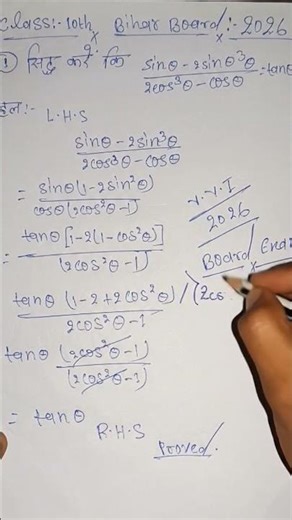 Class:- 10th, Bihar Board:- 2026
① सिद्ध करें कि sinθ - 2sinθ³θ / 2cos³θ - cosθ = tanθ
हल:- L.H.S
sinθ - 2sin³θ / 2cos³θ - cosθ
= sinθ(1-2sin²θ) / cosθ(2cos²θ-1)
V.V.I
2026
= tanθ[1-2(1-cos²θ)] / (2cos²θ-1)
Board
tanθ (1-2+2cos²θ) / 2cos²θ-1 / (2cos
tanθ (2cos²θ-1) / (2cos²θ-1)
= tanθ
R.H.S Proved.